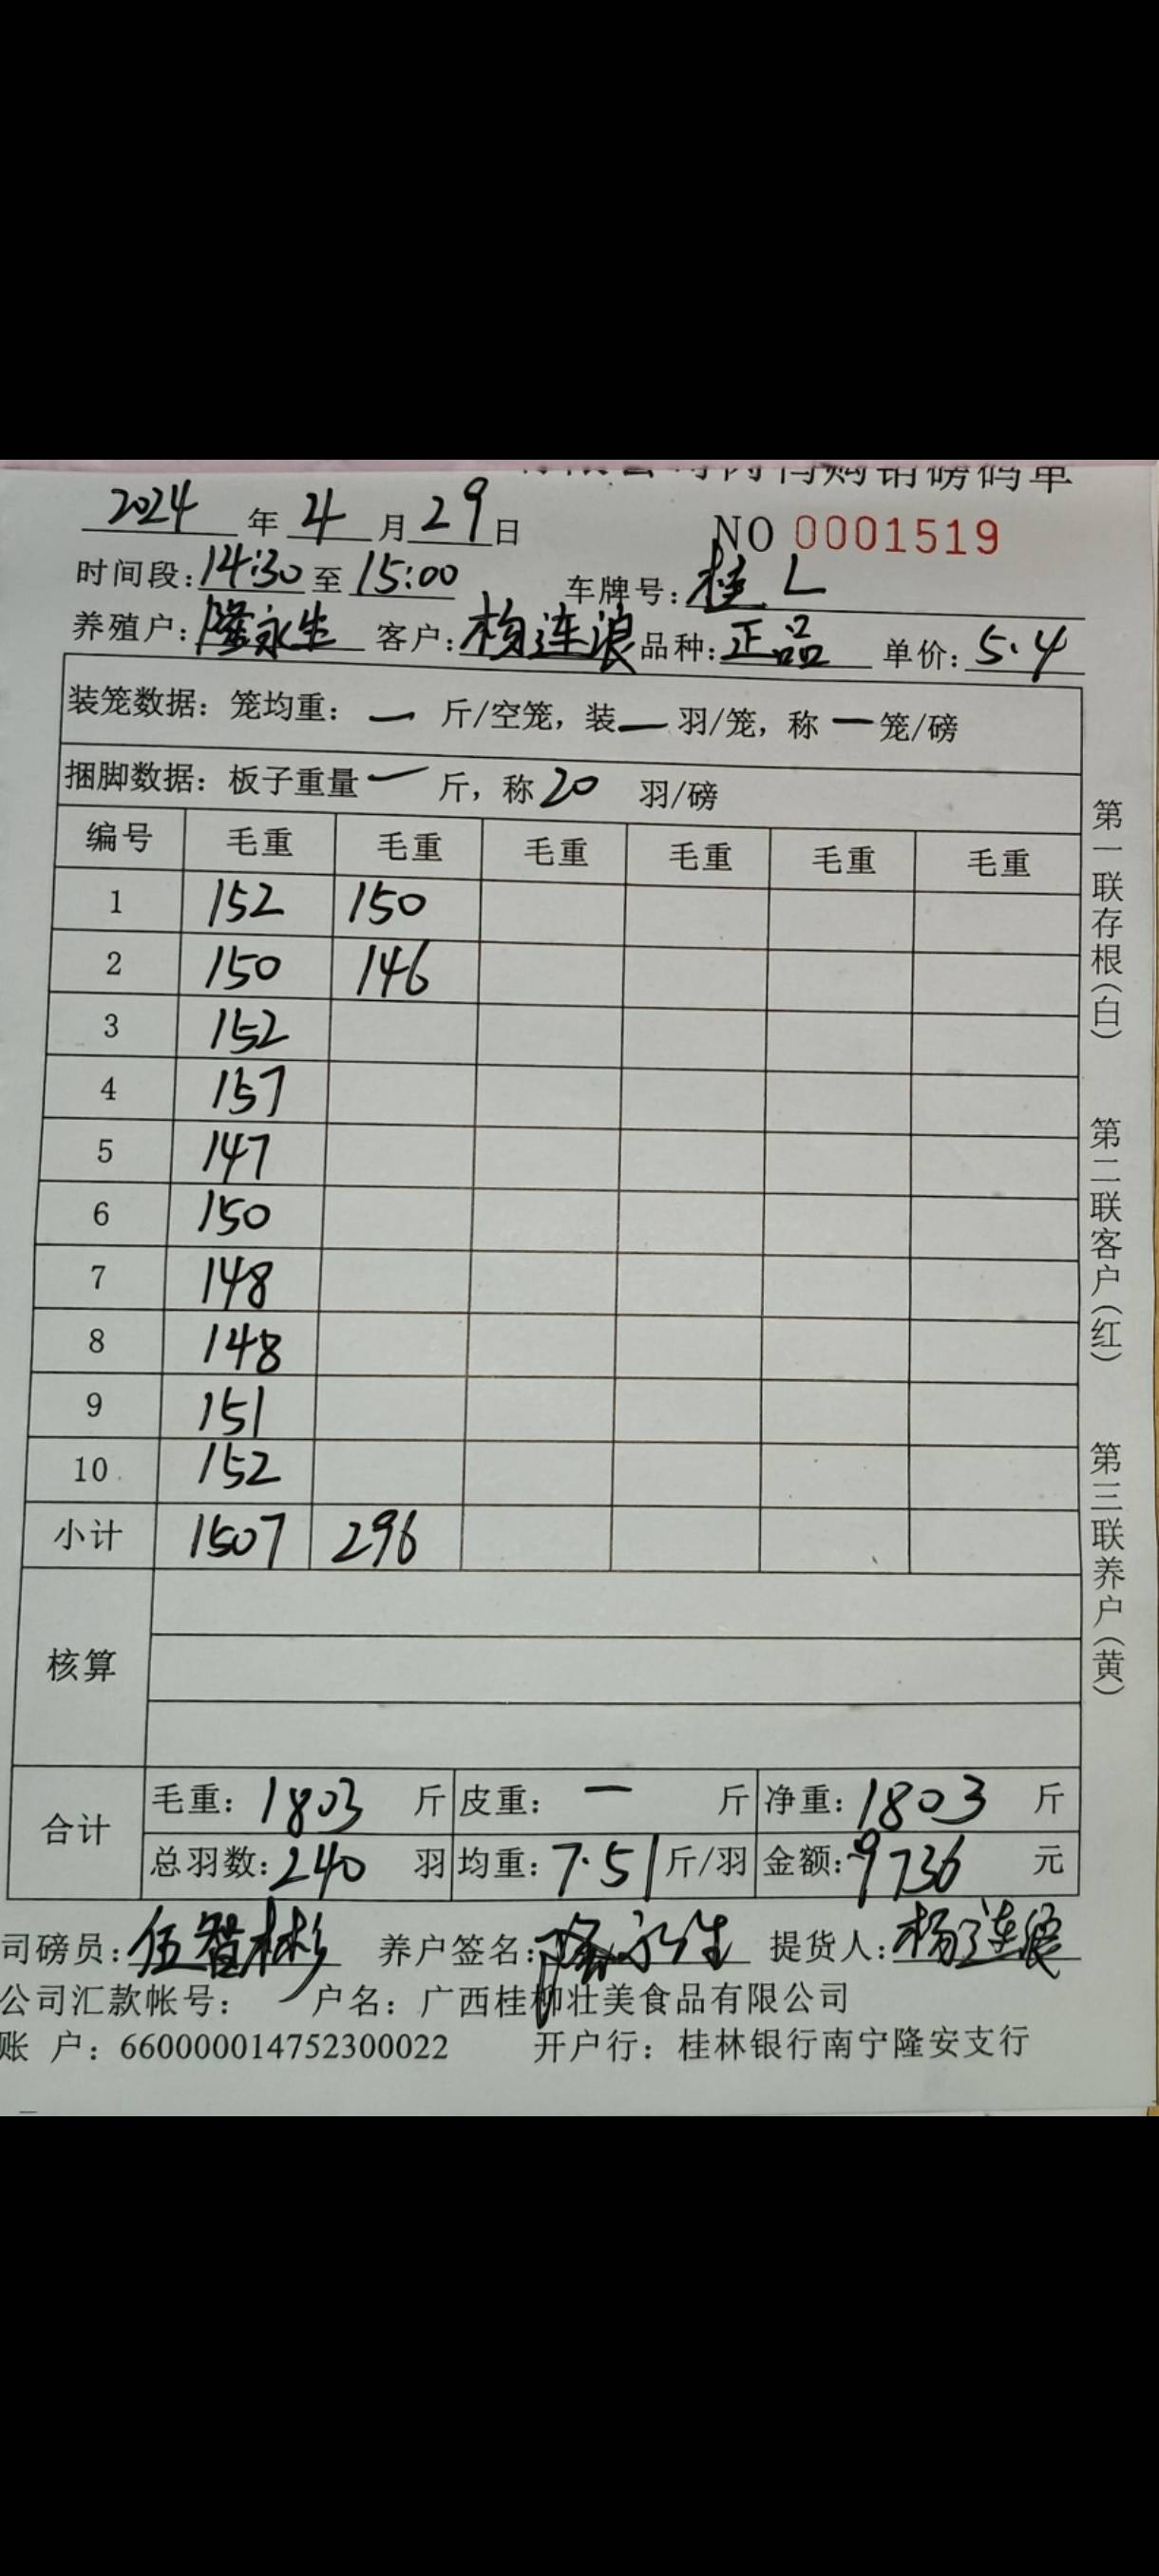 购销磅码单
2024 年 4 月 29 日 NO 0001519
时间段: 14:30 至 15:00 车牌号: 桂L
养殖户: 隆永生 客户: 杨连浪 品种: 正品 单价: 5.4
装笼数据: 笼均重: 一 斤/空笼, 装 一 羽/笼, 称 一 笼/磅
捆脚数据: 板子重量 一 斤, 称 20 羽/磅
编号 毛重 毛重 毛重 毛重 毛重 毛重
1 152 150
2 150 146
3 152
4 157
5 147
6 150
7 148
8 148
9 151
10 152
小计 1507 296
核算
合计 毛重: 1803 斤 皮重: 一 斤 净重: 1803 斤
总羽数: 240 羽 均重: 7.51 斤/羽 金额: 9736 元
司磅员: 伍智彬 养户签名: 隆永生 提货人: 杨连浪
公司汇款帐号: 户名: 广西桂柳壮美食品有限公司
账 户: 660000014752300022 开户行: 桂林银行南宁隆安支行
第一联存根(白) 第二联客户(红) 第三联养户(黄)